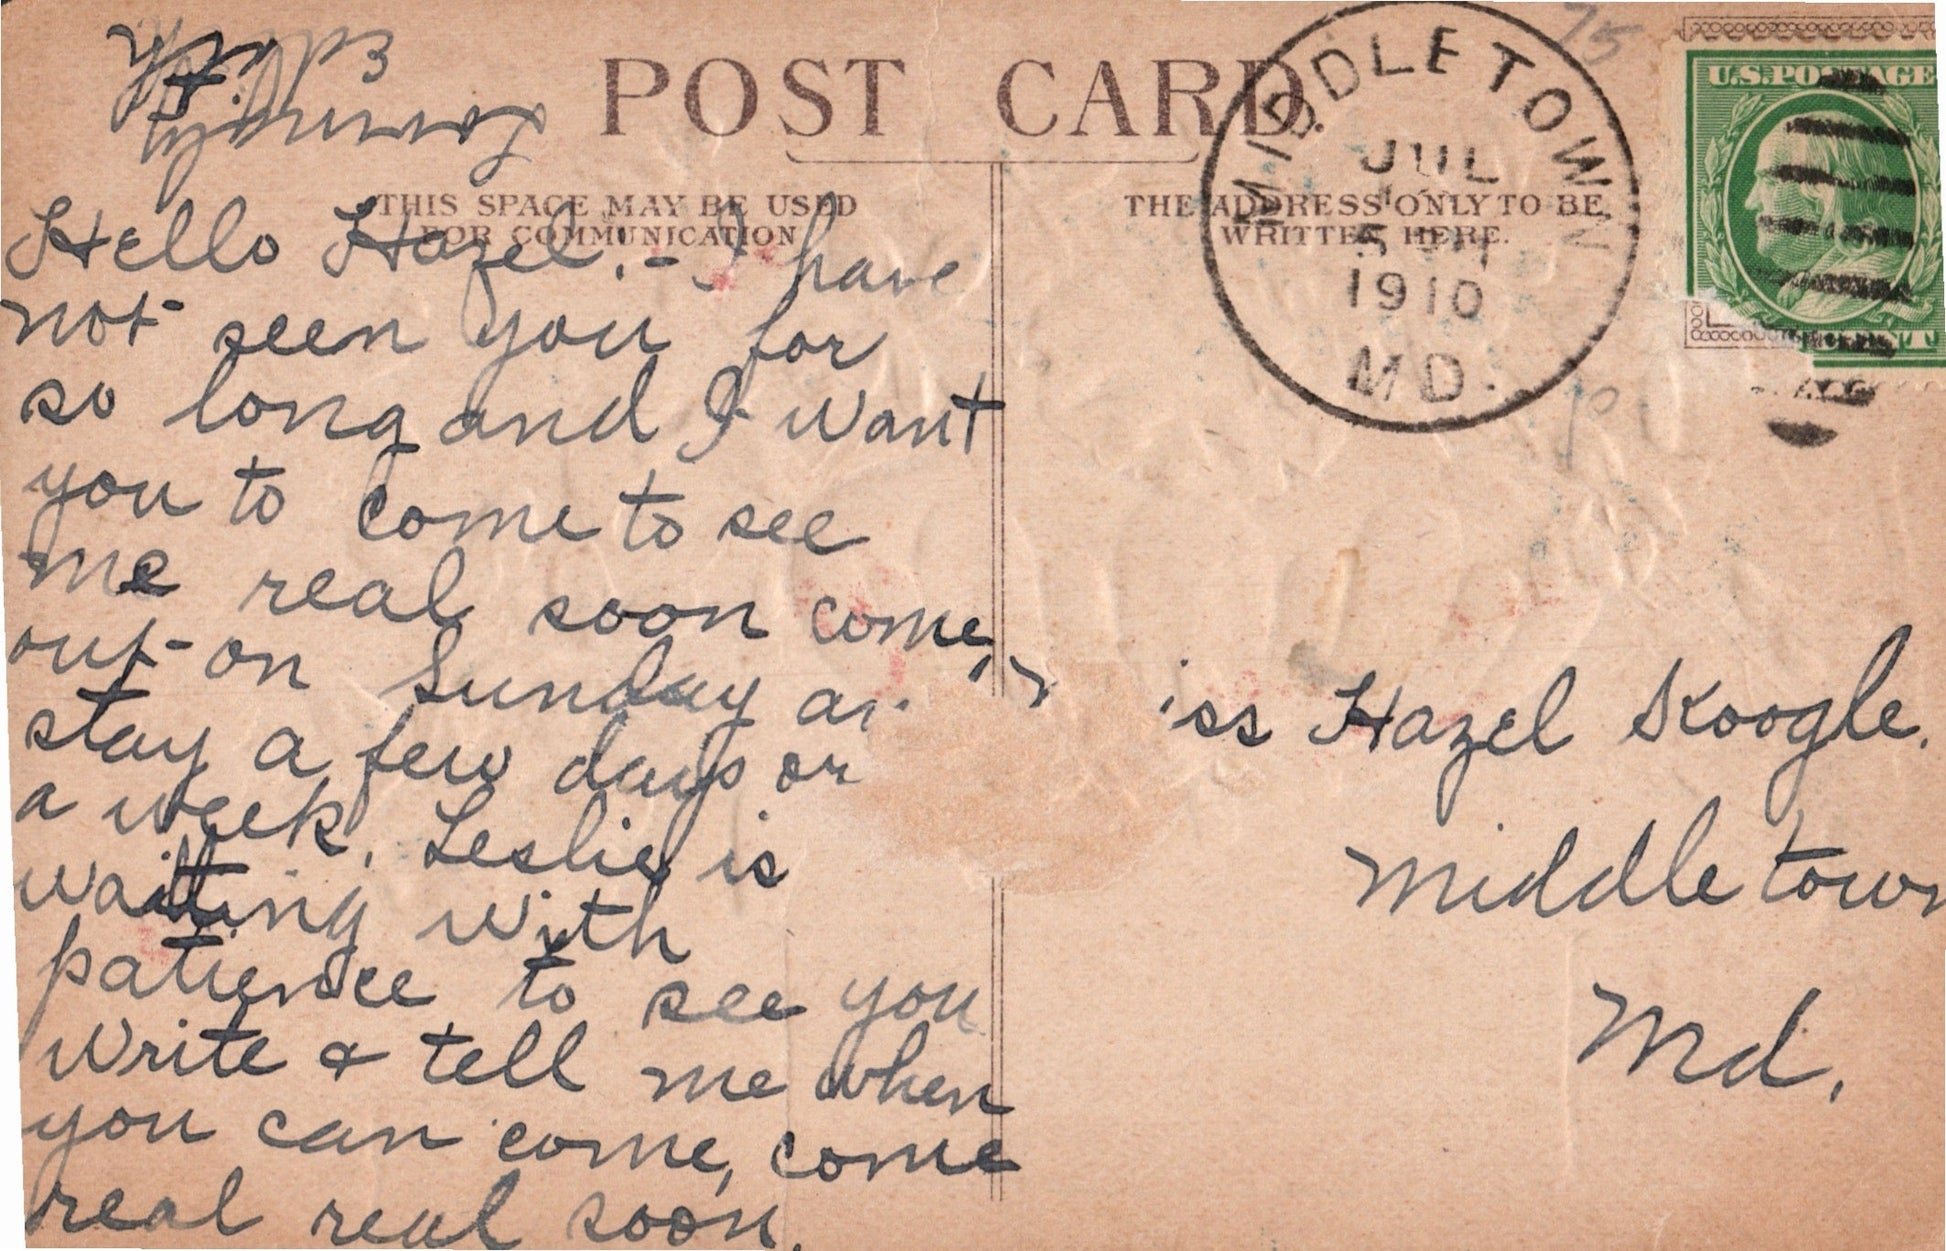 POST CARD
THIS SPACE MAY BE USED
FOR COMMUNICATION
THE ADDRESS ONLY TO BE
WRITTEN HERE.
MIDDLETOWN
JUL
1910
MD.
U.S. POSTAGE
75
Hello Hazel:- I have
not seen you for
so long and I want
you to come to see
me real soon come,
out on Sunday
stay a few days or
a week. Leslie is
waitting with
patience to see you
write & tell me when
you can come, come
real real soon.
Lovingly
Edith
iss Hazel Koogle.
Middletown
Md.